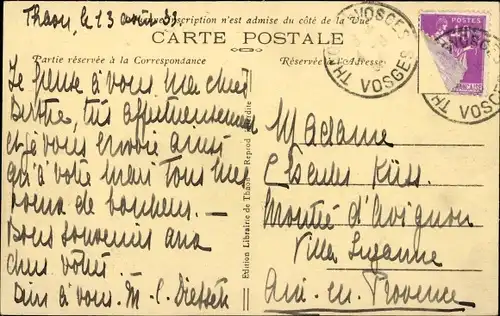 Thaon, le 13 août 33
inscription n'est admise du côté de la Vue
CARTE POSTALE
Partie réservée à la Correspondance
Réservée à l'Adresse
VOSGES
THAON VOSGES
POSTES
Je pense à vous ma chère
Berthe, très affectueusement
et je vous envoie ainsi
qu'à votre mari tous mes
voeux de bonheur. —
Bons souvenirs aux
chers vôtres.
Bien à vous. M. C.
Edition Librairie de Thaon - Reprod. Interdite
Madame
Küss.
Montée d'Avignon
Villa Suzanne
Aix-en-Provence